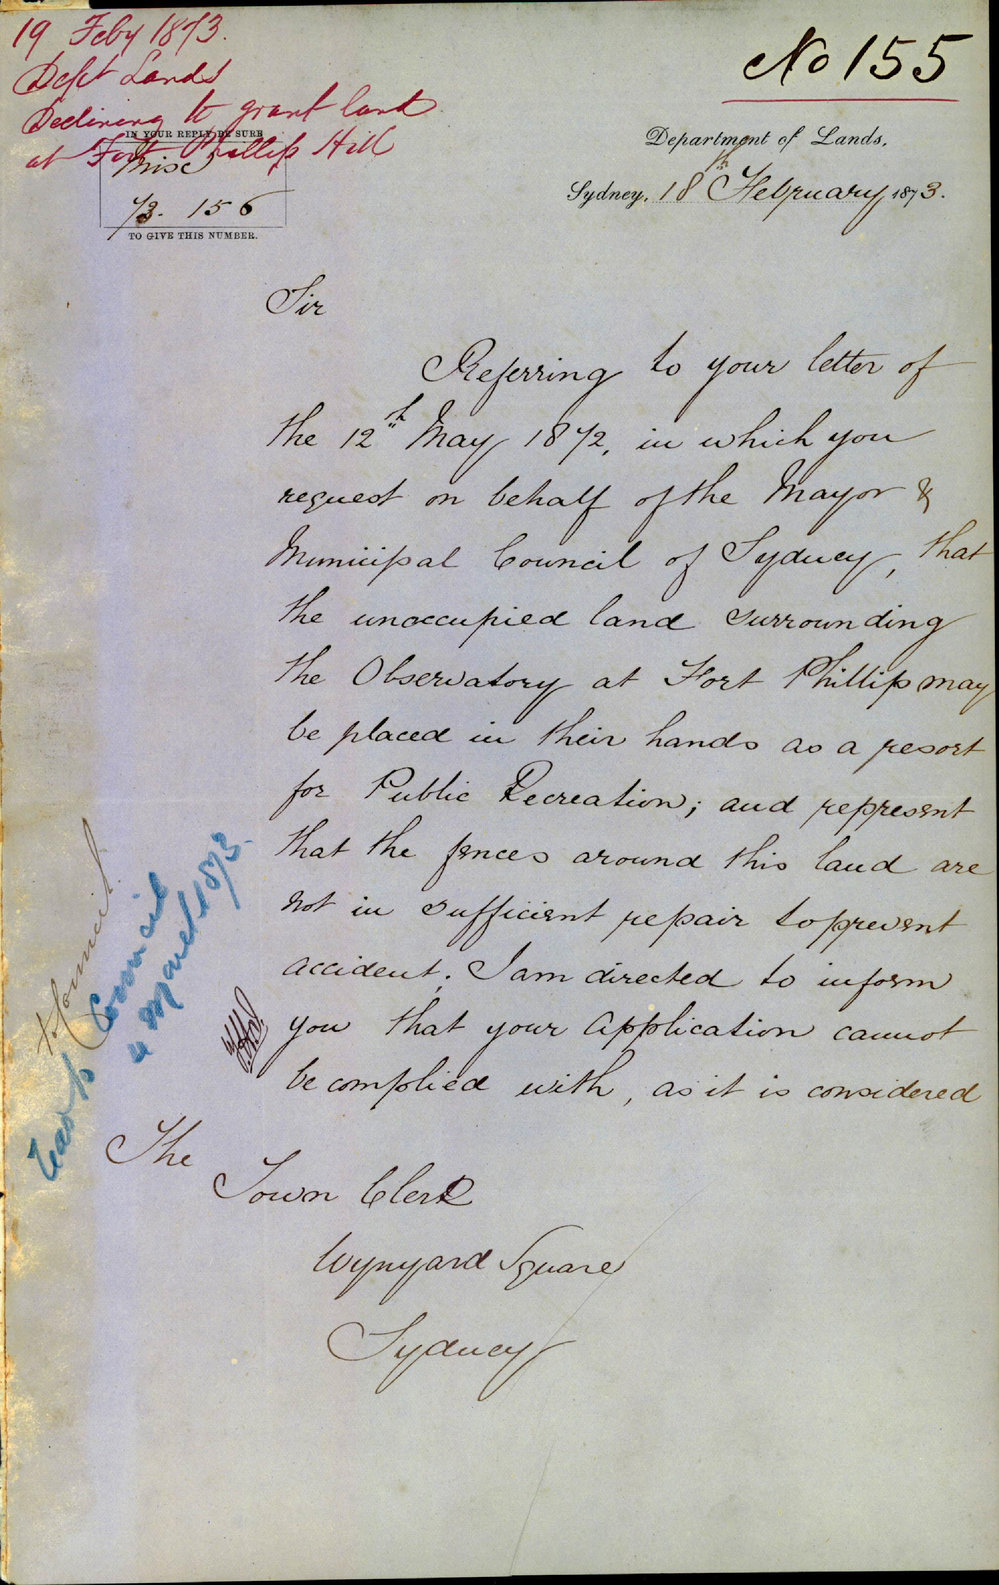 19 Feby 1873.
Dept Lands
Declining to grant land
at Fort Phillip Hill
No 155
IN YOUR REPLY BE SURE
Misc
73. 156
TO GIVE THIS NUMBER.
Department of Lands,
Sydney, 18th February 1873.
Sir
Referring to your letter of
the 12th May 1872, in which you
request on behalf of the Mayor &
Municipal Council of Sydney, that
the unoccupied land surrounding
the Observatory at Fort Phillip may
be placed in their hands as a resort
for Public Recreation; and represent
that the fences around this land are
not in sufficient repair to prevent
accident. I am directed to inform
you that your Application cannot
be complied with, as it is considered
The
Town Clerk
Wynyard Square
Sydney
Council
4 March 1873.